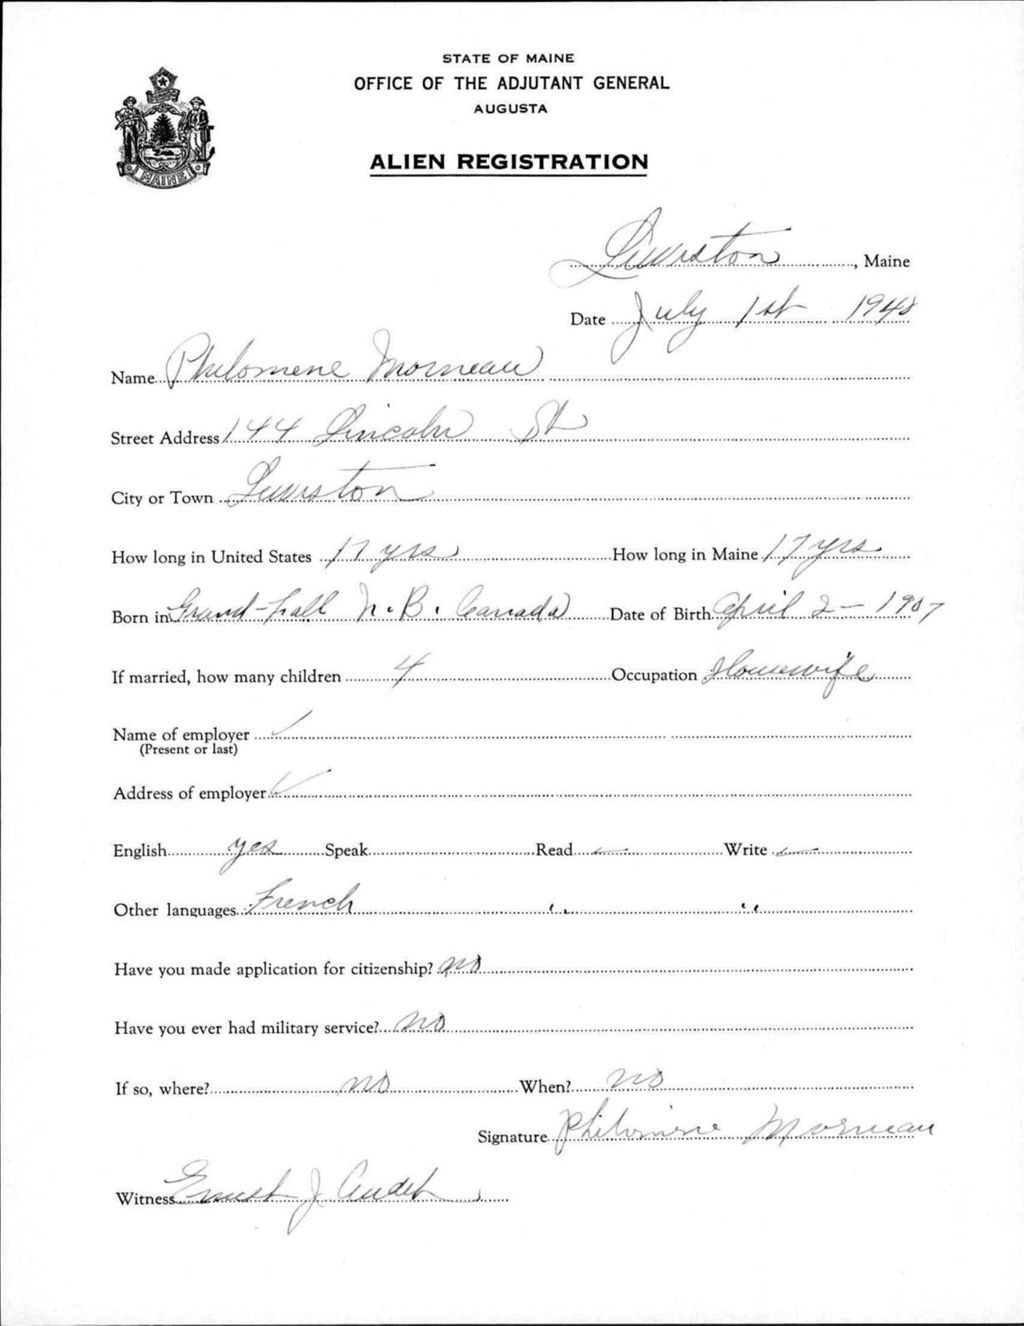 STATE OF MAINE
OFFICE OF THE ADJUTANT GENERAL
AUGUSTA
ALIEN REGISTRATION
MAINE
Lewiston, Maine
Date July 1st 1940
Name Philomene Morneau
Street Address 144 Lincoln St
City or Town Lewiston
How long in United States 17 yrs How long in Maine 17 yrs
Born in Grand-fall N.B. Canada Date of Birth April 2 - 1907
If married, how many children 4 Occupation Housewife
Name of employer ✓
(Present or last)
Address of employer ✓
English yes Speak Read ✓ Write ✓
Other languages French " "
Have you made application for citizenship? no
Have you ever had military service? no
If so, where? no When? no
Signature Philomene Morneau
Witness Ernest J Audet